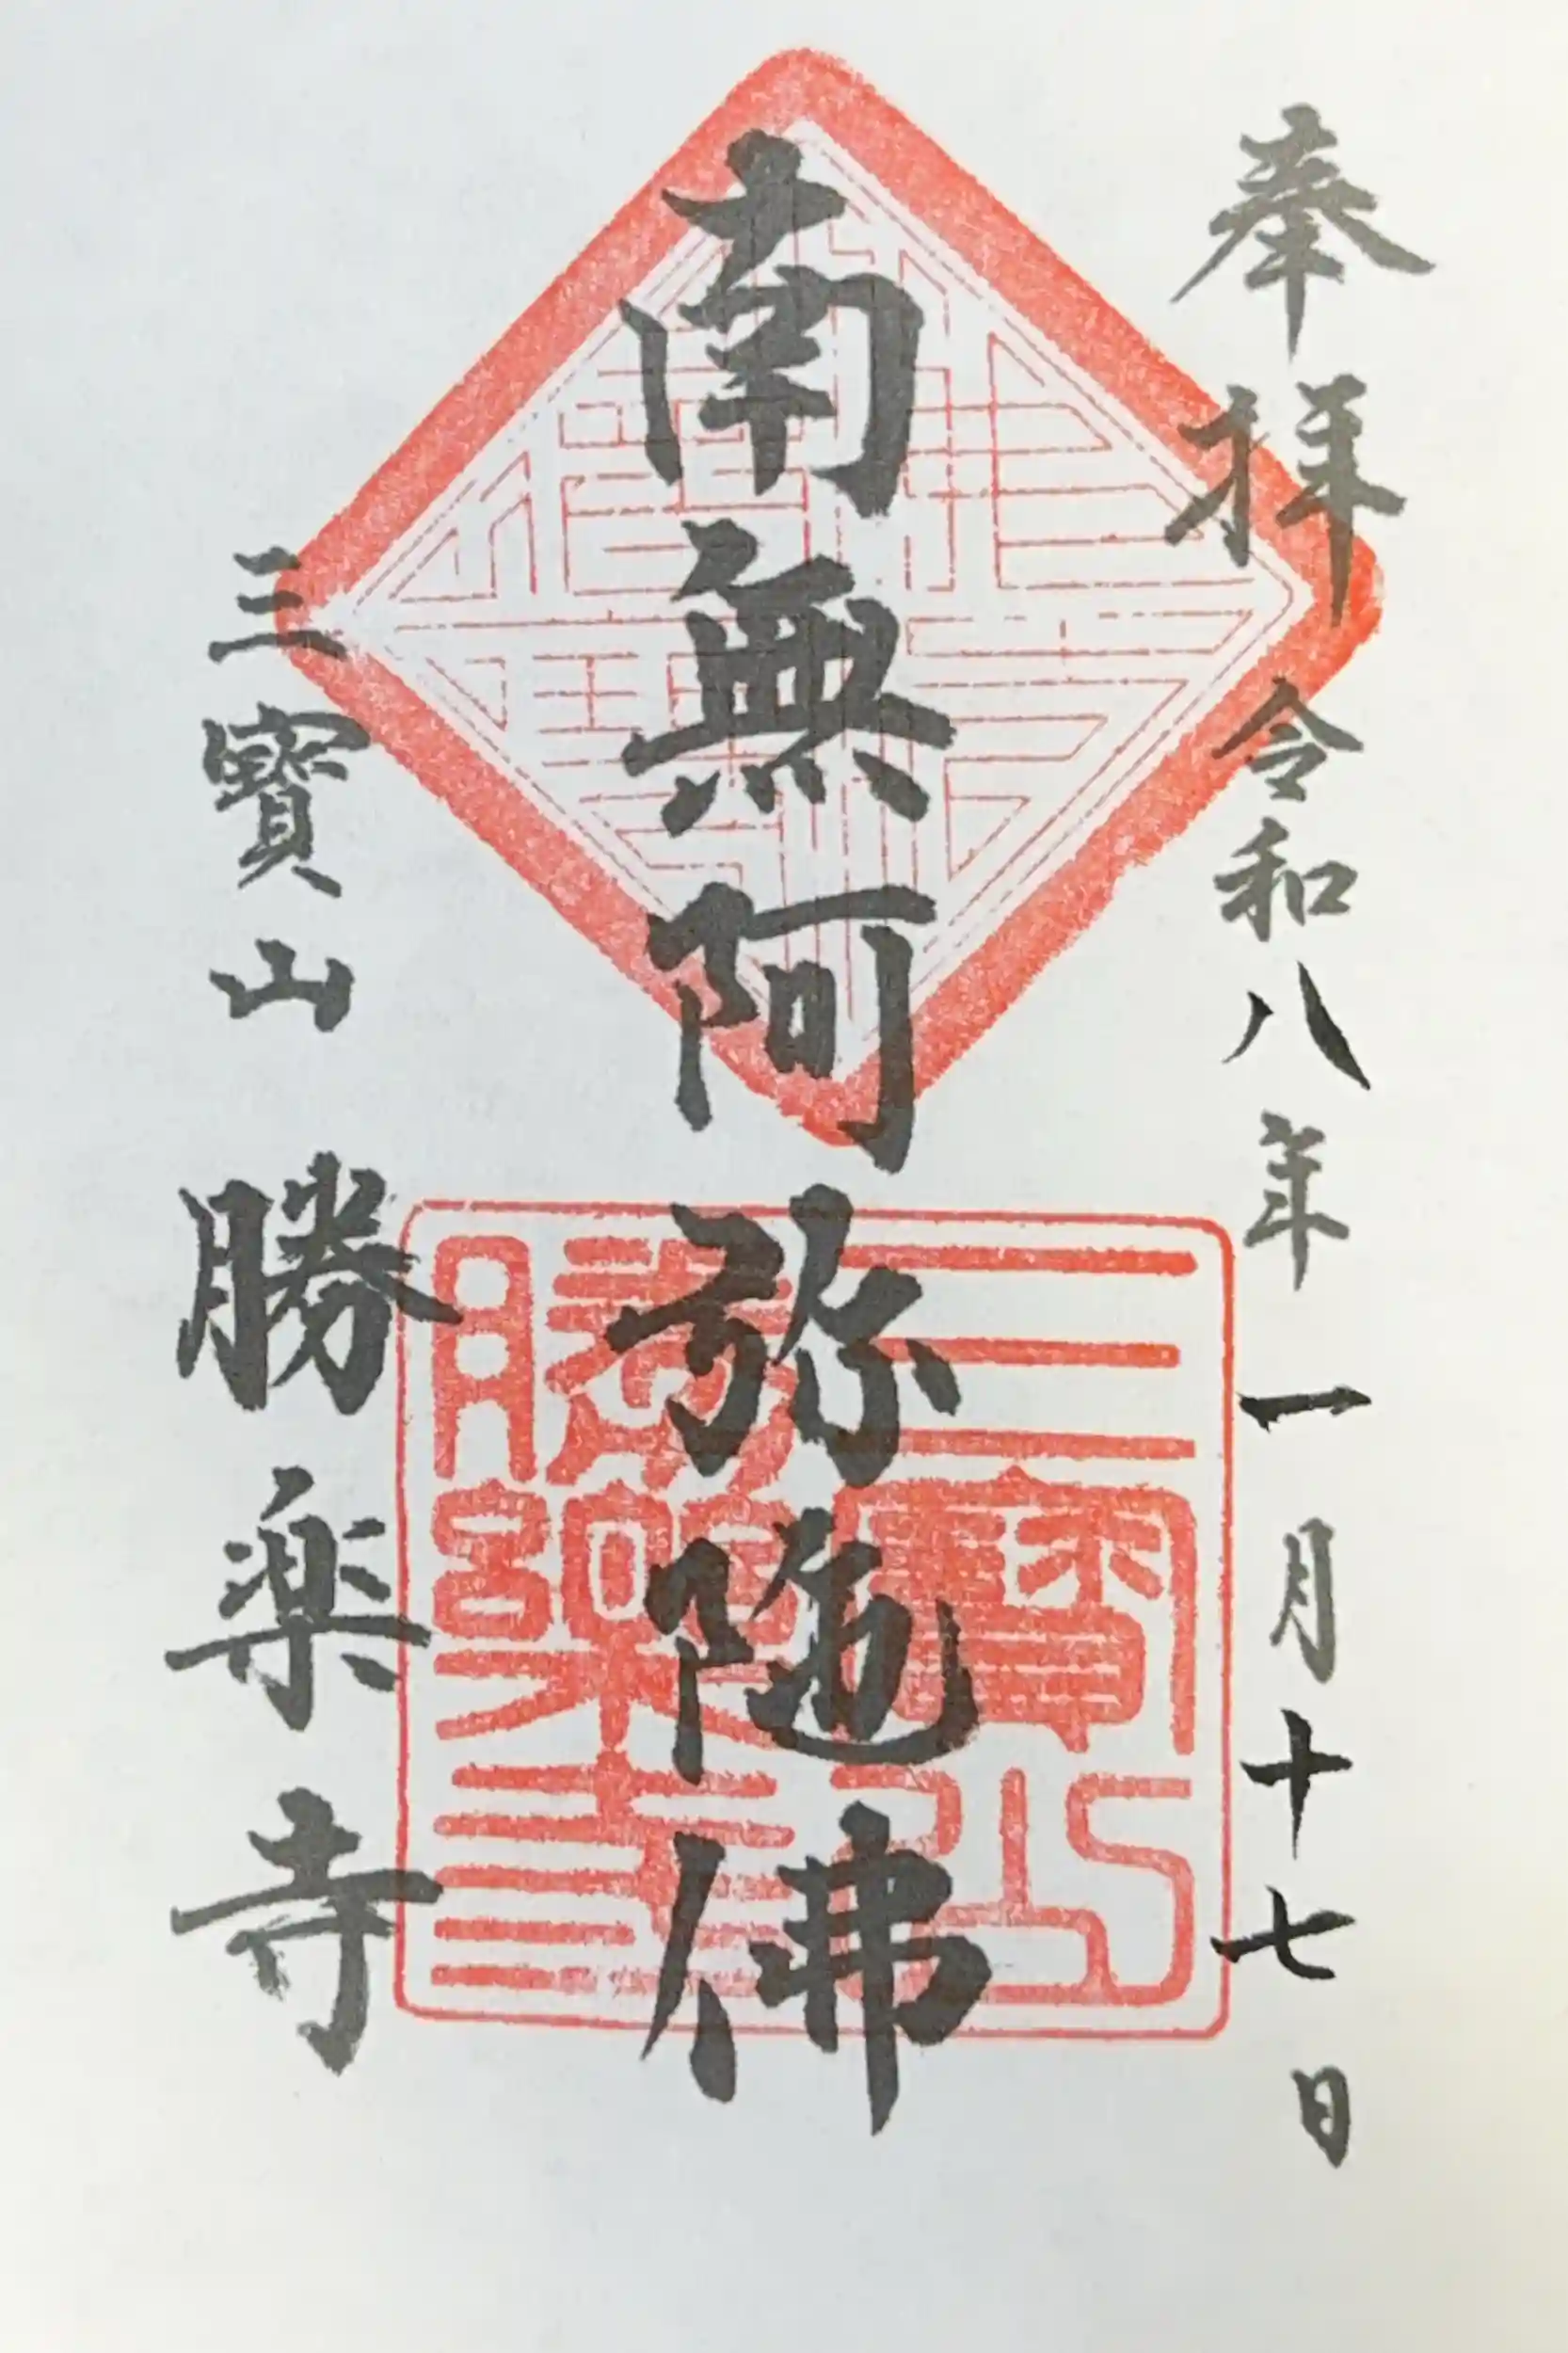 奉拝 令和八年一月十七日
南無阿弥陀佛
三寳山 勝楽寺
三寶山
勝樂寺